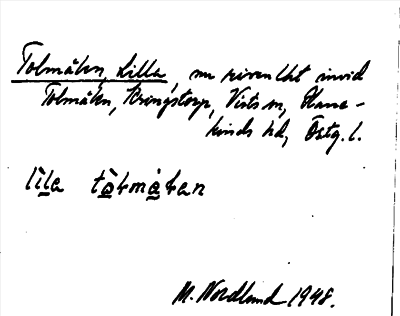 Tolmåhn, Lilla, nu riven lht invid
Tolmåhn, Kringstorp, Vists sn, Hane-
kinds hd, Östg. l.
lìla
M. Nordlund 1948.